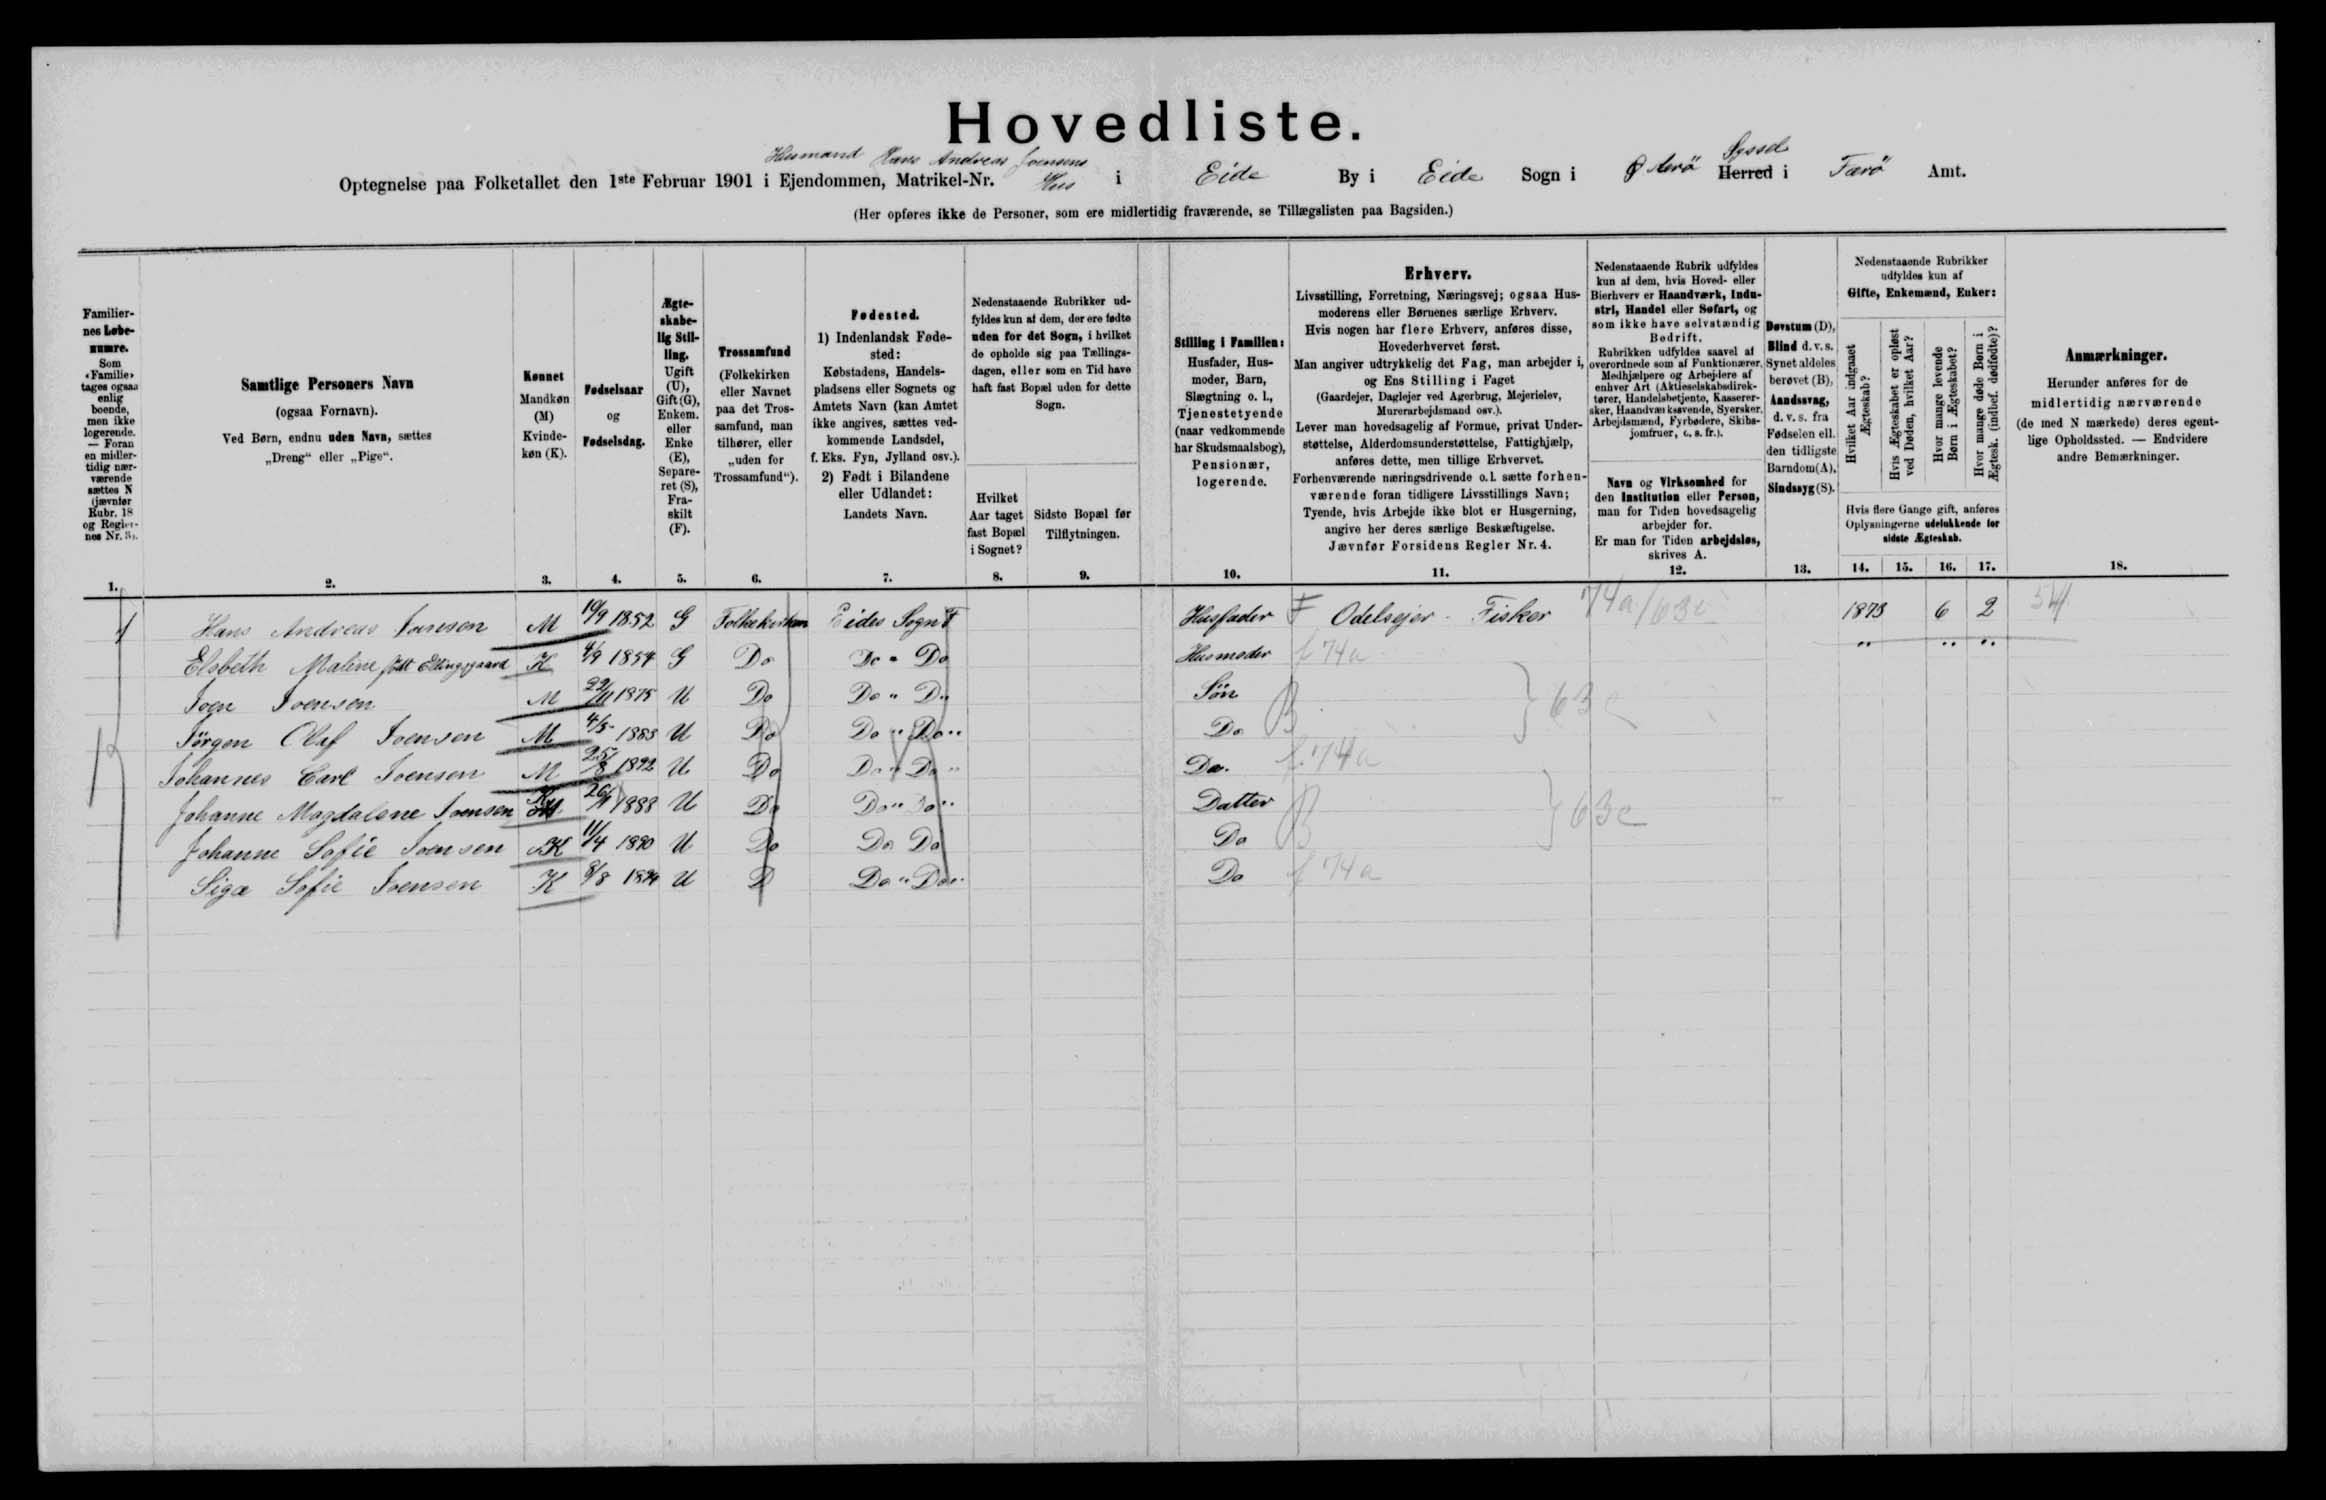 Hovedliste.
Husmand Hans Andreas Joensens Syssel
Optegnelse paa Folketallet den 1ste Februar 1901 i Ejendommen, Matrikel-Nr. Hus i Eide By i Eide Sogn i Østerö Herred i Færö Amt.
(Her opføres ikke de Personer, som ere midlertidig fraværende, se Tillægslisten paa Bagsiden.)
Familiernes Løbenumre.
Som «Familie» tages ogsaa enlig boende, men ikke logerende. — Foran en midlertidig nærværende sættes N (jævnfør Rubr. 18 og Reglernes Nr. 3).
1.
Samtlige Personers Navn
(ogsaa Fornavn).
Ved Børn, endnu uden Navn, sættes
„Dreng“ eller „Pige“.
2.
Kønnet
Mandkøn
(M)
Kvinde-
køn (K).
3.
Fødselsaar
og
Fødselsdag.
4.
Ægte-
skabe-
lig Stil-
ling.
Ugift
(U),
Gift (G),
Enkem.
eller
Enke
(E),
Separe-
ret (S),
Fra-
skilt
(F).
5.
Trossamfund
(Folkekirken
eller Navnet
paa det Tros-
samfund, man
tilhører, eller
„uden for
Trossamfund“).
6.
Fødested.
1) Indenlandsk Føde-
sted:
Købstadens, Handels-
pladsens eller Sognets og
Amtets Navn (kan Amtet
ikke angives, sættes ved-
kommende Landsdel,
f. Eks. Fyn, Jylland osv.).
2) Født i Bilandene
eller Udlandet:
Landets Navn.
7.
Nedenstaaende Rubrikker ud-
fyldes kun af dem, der ere fødte
uden for det Sogn, i hvilket
de opholde sig paa Tællings-
dagen, eller som en Tid have
haft fast Bopæl uden for dette
Sogn.
Hvilket
Aar taget
fast Bopæl
i Sognet?
8.
Sidste Bopæl før
Tilflytningen.
9.
Stilling i Familien:
Husfader, Hus-
moder, Barn,
Slægtning o. l.,
Tjenestetyende
(naar vedkommende
har Skudsmaalsbog),
Pensionær,
logerende.
10.
Erhverv.
Livsstilling, Forretning, Næringsvej; ogsaa Hus-
moderens eller Børnenes særlige Erhverv.
Hvis nogen har flere Erhverv, anføres disse,
Hovederhvervet først.
Man angiver udtrykkelig det Fag, man arbejder i,
og Ens Stilling i Faget
(Gaardejer, Daglejer ved Agerbrug, Mejerielev,
Murerarbejdsmand osv.).
Lever man hovedsagelig af Formue, privat Under-
støttelse, Alderdomsunderstøttelse, Fattighjælp,
anføres dette, men tillige Erhvervet.
Forhenværende næringsdrivende o. l. sætte forhen-
værende foran tidligere Livsstillings Navn;
Tyende, hvis Arbejde ikke blot er Husgerning,
angive her deres særlige Beskæftigelse.
Jævnfør Forsidens Regler Nr. 4.
11.
Nedenstaaende Rubrik udfyldes
kun af dem, hvis Hoved- eller
Bierhverv er Haandværk, Indu-
stri, Handel eller Søfart, og
som ikke have selvstændig
Bedrift.
Rubrikken udfyldes saavel af
overordnede som af Funktionærer,
Medhjælpere og Arbejdere af
enhver Art (Aktieselskabsdirek-
tører, Handelsbetjente, Kasserer-
sker, Haandværkssvende, Syersker,
Arbejdsmænd, Fyrbødere, Skibs-
jomfruer, o. s. fr.).
Navn og Virksomhed for
den Institution eller Person,
man for Tiden hovedsagelig
arbejder for.
Er man for Tiden arbejdsløs,
skrives A.
12.
Døvstum (D),
Blind d. v. s.
Synet aldeles
berøvet (B),
Aandssvag,
d. v. s. fra
Fødselen ell.
den tidligste
Barndom (A),
Sindssyg (S).
13.
Nedenstaaende Rubrikker
udfyldes kun af
Gifte, Enkemænd, Enker:
Hvilket Aar indgaaet
Ægteskab?
Hvis Ægteskabet er opløst
ved Døden, hvilket Aar?
Hvor mange levende
Børn i Ægteskabet?
Hvor mange døde Børn i
Ægtesk. (indbef. dødfødte)?
Hvis flere Gange gift, anføres
Oplysningerne udelukkende for
sidste Ægteskab.
14. 15. 16. 17.
Anmærkninger.
Herunder anføres for de
midlertidig nærværende
(de med N mærkede) deres egent-
lige Opholdssted. — Endvidere
andre Bemærkninger.
18.
1 Hans Andreas Joensen M 19/9 1852 G Folkekirken Eides Sogn F Husfader F Odelsejer - Fisker 74a/63c 1873 6 2
Elsbeth Maline født Ellingsgaard K 4/9 1854 G Do Do " Do Husmoder f 74a " " "
Joen Joensen M 22/11 1875 U Do Do " Do Søn B
Jörgen Olaf Joensen M 4/5 1885 U Do Do " Do " Do } 63c
Johannes Carl Joensen M 25/8 1892 U Do Do " Do " Do. f. 74a
Johanne Magdalene Joensen K 26/1 1888 U Do Do " Do " Datter B
Johanne Sofie Joensen K 11/4 1890 U Do Do Do Do } 63c
Siga Sofie Joensen K 8/8 1894 U D Do " Do " Do f 74a